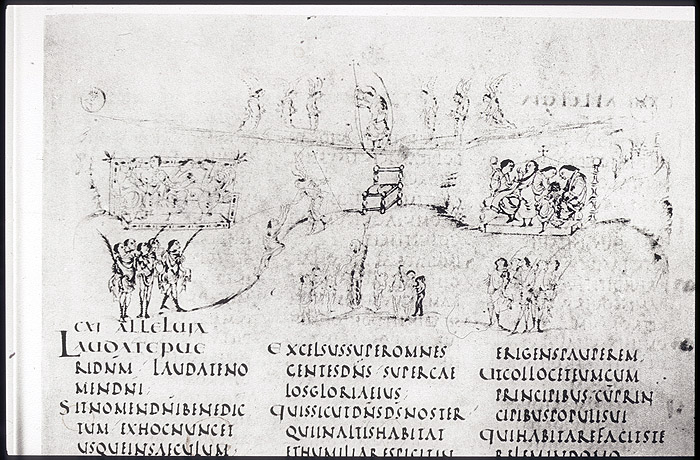 CXI ALLELUIA
LAUDATE PUE
RI DNM LAUDATE NO
MEN DNI
SIT NOMEN DNI BENEDIC
TUM EX HOC NUNC ET
USQUE IN SAECULUM
EXCELSUS SUPER OMNES
GENTES DNS SUPER CAE
LOS GLORIA EIUS
QUIS SICUT DNS DS NOSTER
QUI IN ALTIS HABITAT
ET HUMILIA RESPICIT IN
ERIGENS PAUPEREM
UT COLLOCET EUM CUM
PRINCIPIBUS CUM PRIN
CIPIBUS POPULI SUI
QUI HABITARE FACIT STE
RELEM IN DOMO